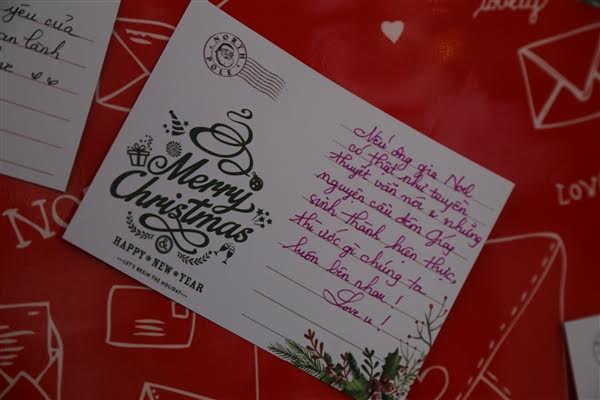 yêu của
an lành
NORTH POLE
Merry
Christmas
&
HAPPY NEW YEAR
LET'S BEGIN THE HOLIDAY
Nếu ông già Noel
có thật như truyền
thuyết vẫn nói & những
nguyện cầu đêm Giáng
sinh thành hiện thực,
thì ước gì chúng ta
luôn bên nhau!
Love u!
lovely
LOVE
NO